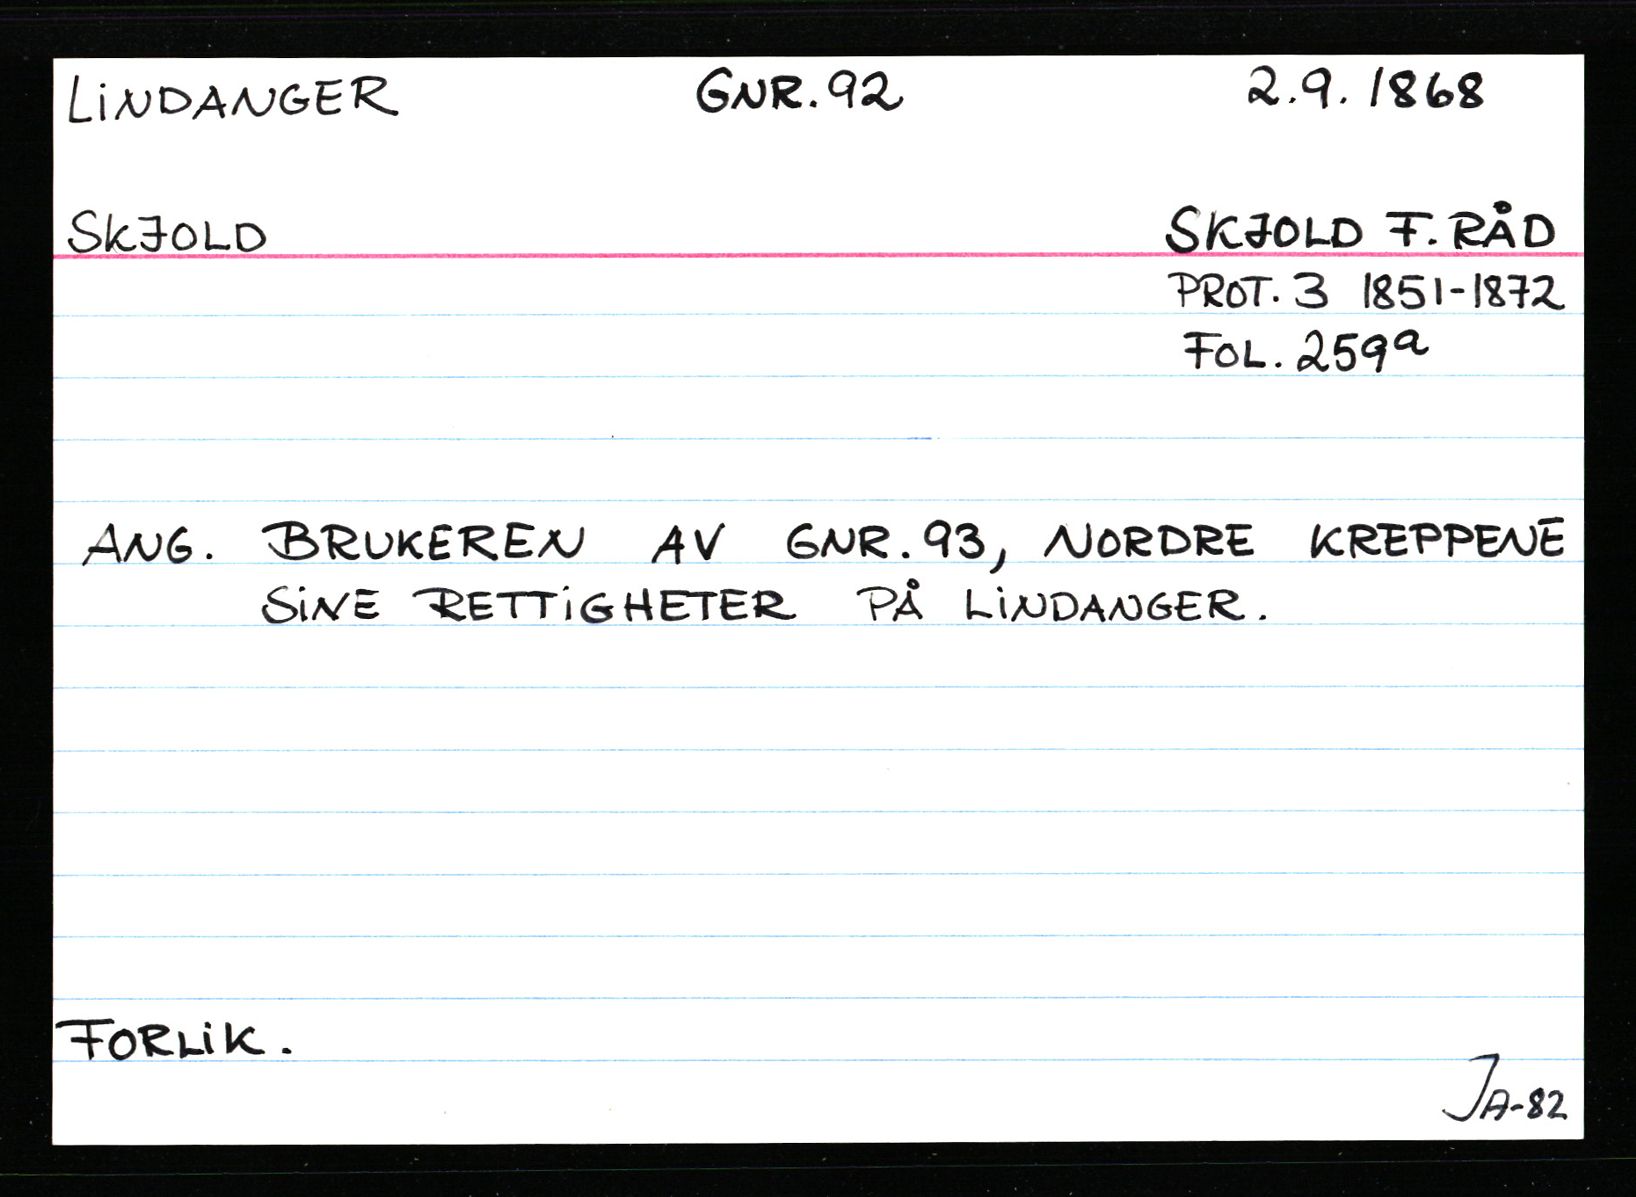 LINDANGER GNR. 92 2.9. 1868
SKJOLD SKJOLD F. RÅD
PROT. 3 1851-1872
FOL. 259a
ANG. BRUKEREN AV GNR. 93, NORDRE KREPPENE
SINE RETTIGHETER PÅ LINDANGER.
FORLIK.
JA-82